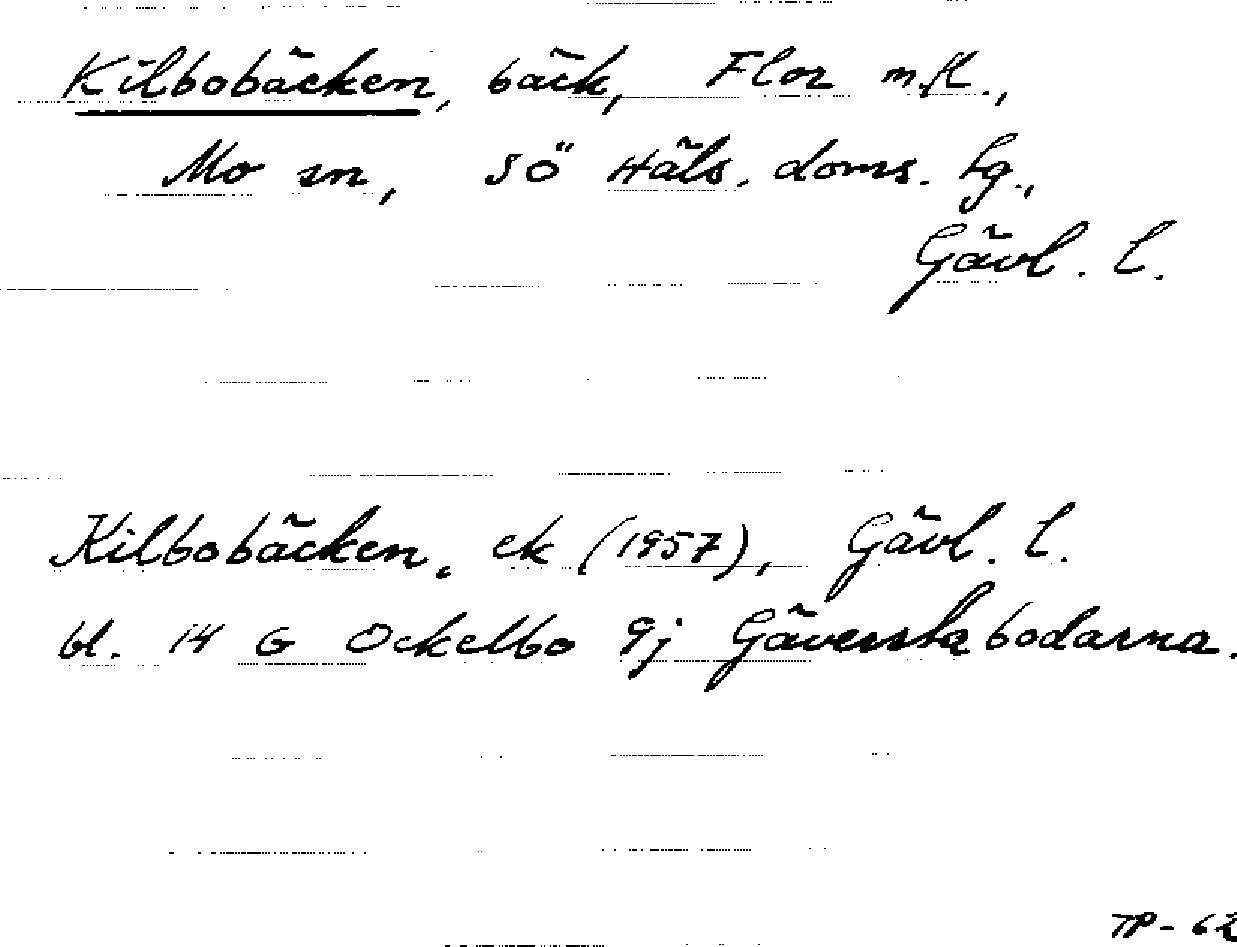 Kilbobäcken, bäck, Flor m.fl.,
Mo sn, Sö Häls. doms. tg.,
Gävl. l.
Kilbobäcken, ek (1957), Gävl. l.
bl. 14 G Ockelbo 9j Gäverstabodarna.
TP - 62